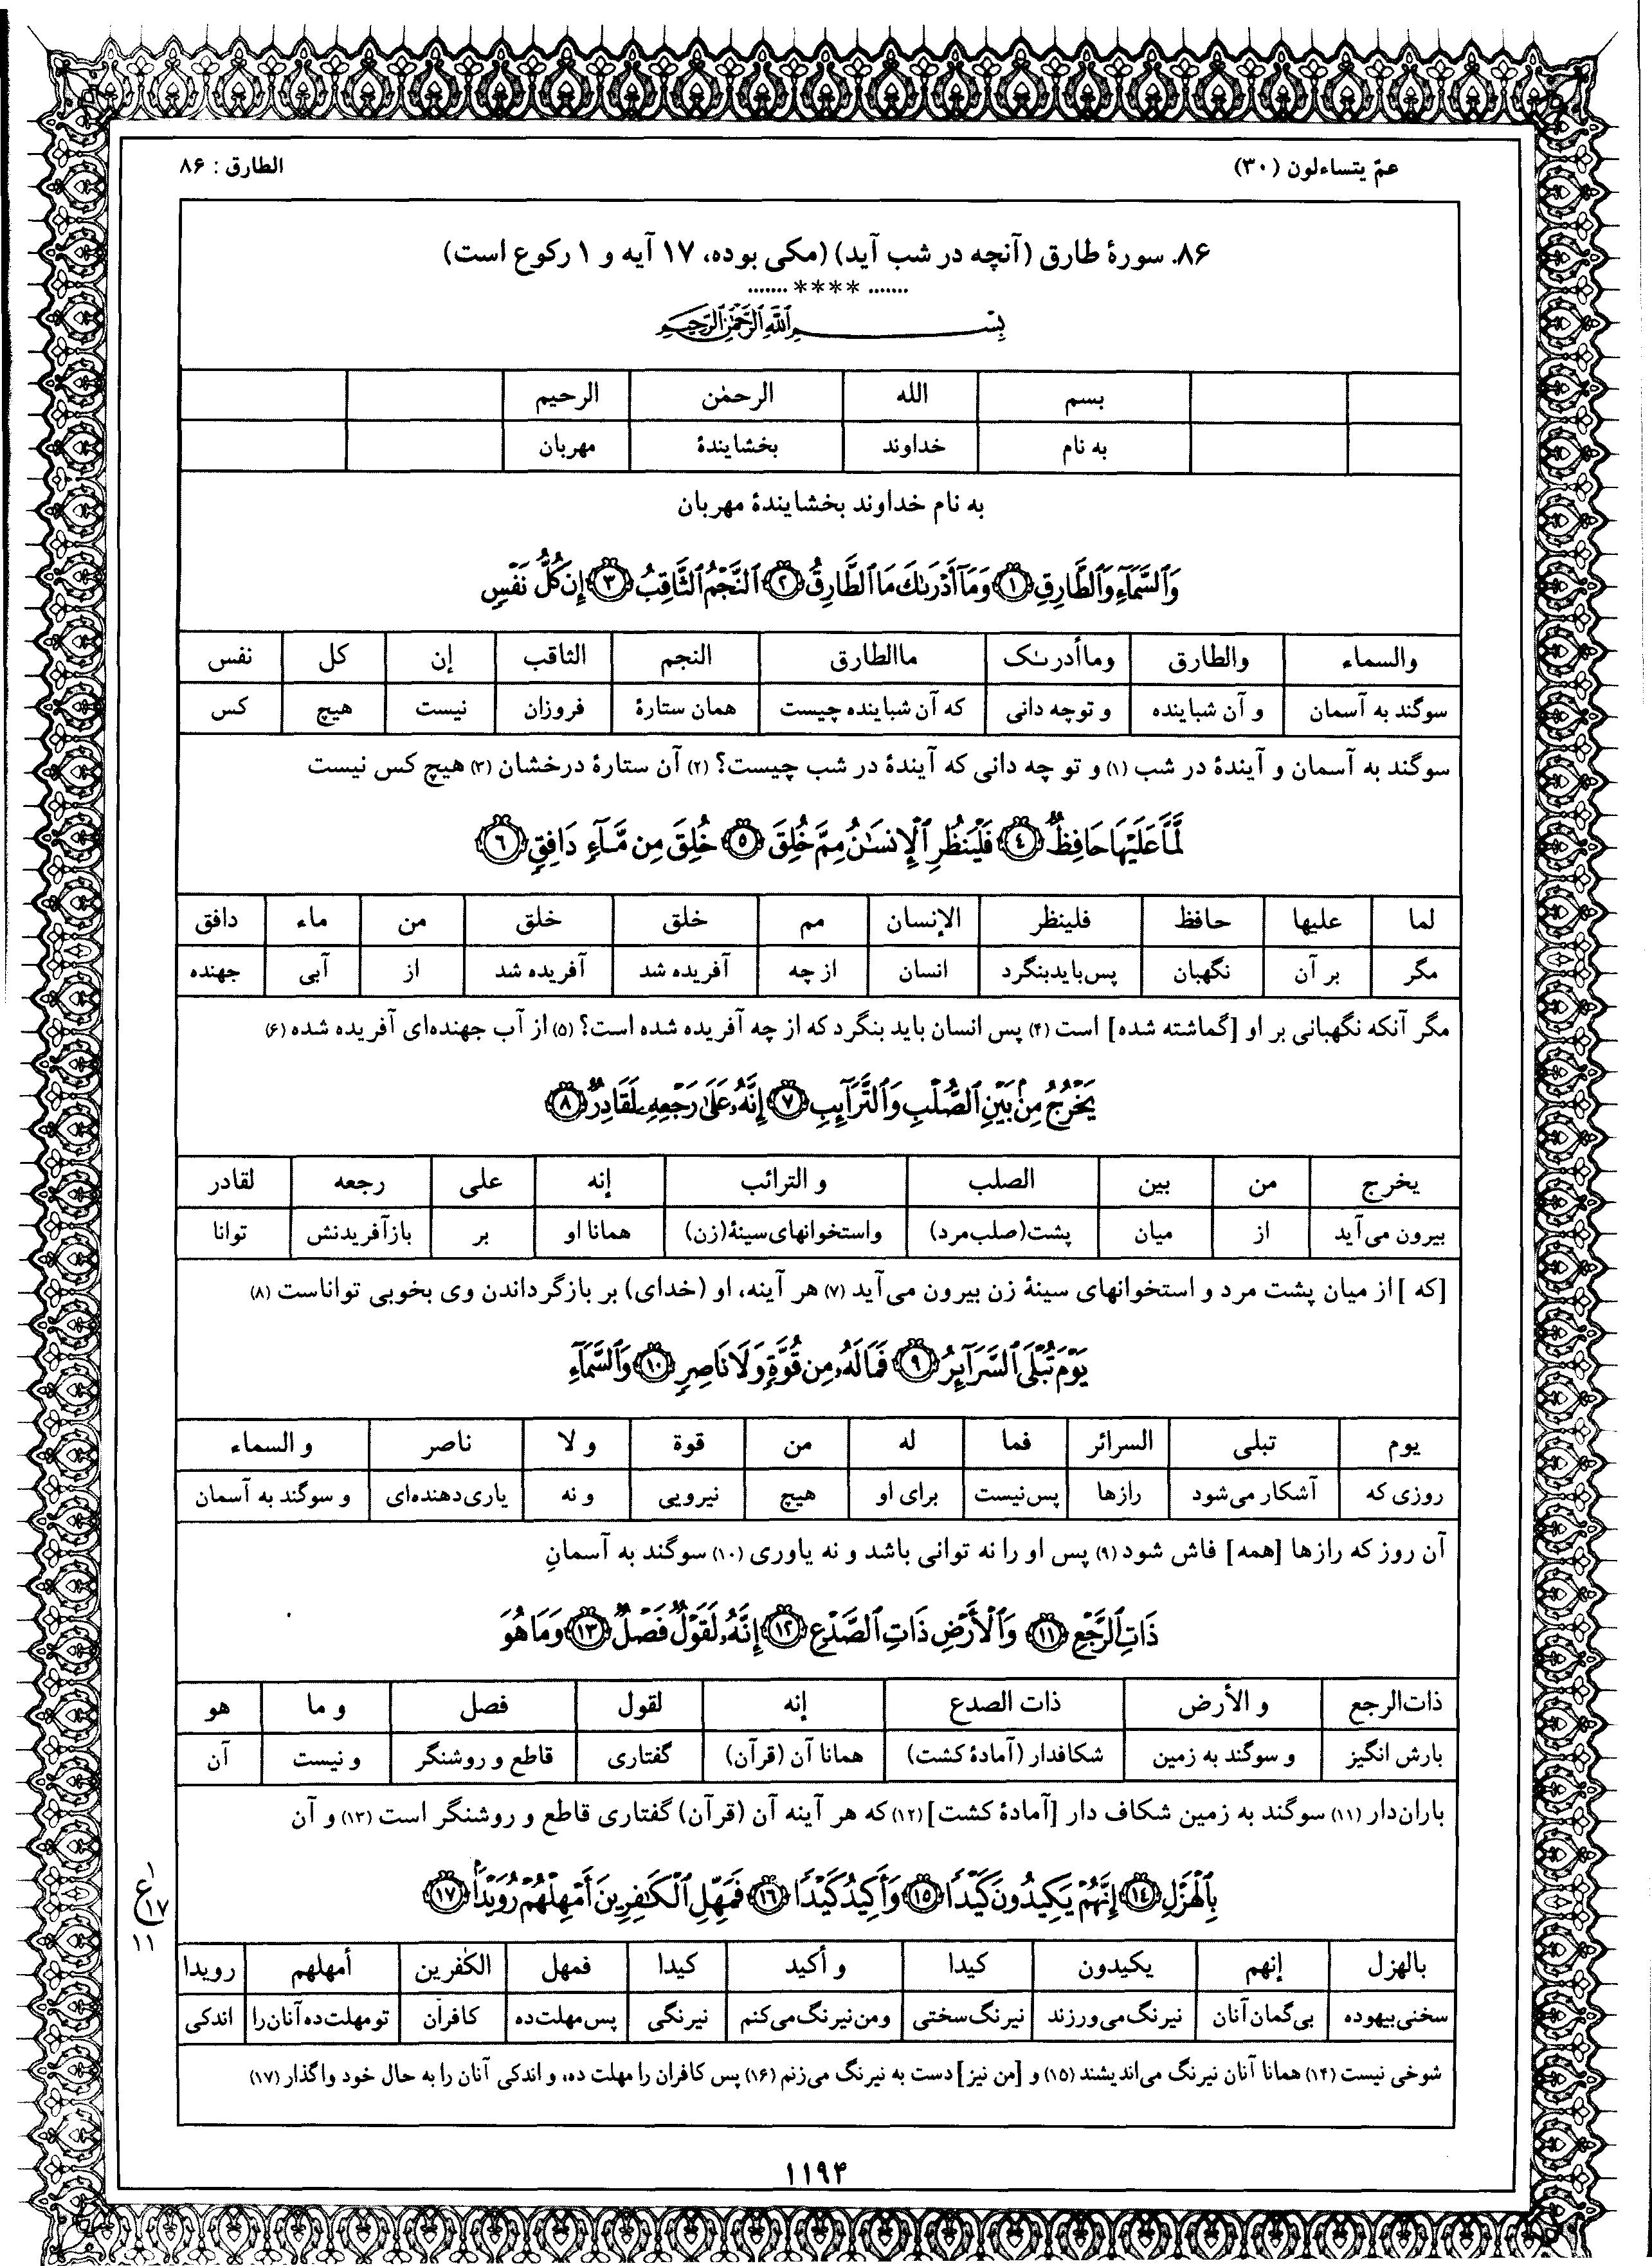 عمّ یتساءلون (۳۰)
الطارق : ۸۶
۸۶. سورهٔ طارق (آنچه در شب آید) (مکی بوده، ۱۷ آیه و ۱ رکوع است)
....... **** .......
بِسْمِ ٱللَّهِ ٱلرَّحْمَٰنِ ٱلرَّحِيمِ
بسم الله الرحمٰن الرحیم
به نام خداوند بخشایندهٔ مهربان
به نام خداوند بخشایندهٔ مهربان
وَٱلسَّمَآءِ وَٱلطَّارِقِ ١ وَمَآ أَدْرَىٰكَ مَا ٱلطَّارِقُ ٢ ٱلنَّجْمُ ٱلثَّاقِبُ ٣ إِن كُلُّ نَفْسٍ
والسماء والطارق وماأدرىٰک ماالطارق النجم الثاقب إن کل نفس
سوگند به آسمان و آن شباینده و توچه دانی که آن شباینده چیست همان ستارهٔ فروزان نیست هیچ کس
سوگند به آسمان و آیندهٔ در شب (۱) و تو چه دانی که آیندهٔ در شب چیست؟ (۲) آن ستارهٔ درخشان (۳) هیچ کس نیست
لَّمَّا عَلَيْهَا حَافِظٌ ٤ فَلْيَنظُرِ ٱلْإِنسَٰنُ مِمَّ خُلِقَ ٥ خُلِقَ مِن مَّآءٍ دَافِقٍ ٦
لما علیها حافظ فلینظر الإنسان مم خلق خلق من ماء دافق
مگر بر آن نگهبان پس‌بایدبنگرد انسان از چه آفریده شد آفریده شد از آبی جهنده
مگر آنکه نگهبانی بر او [گماشته شده] است (۴) پس انسان باید بنگرد که از چه آفریده شده است؟ (۵) از آب جهنده‌ای آفریده شده (۶)
يَخْرُجُ مِنۢ بَيْنِ ٱلصُّلْبِ وَٱلتَّرَآئِبِ ٧ إِنَّهُۥ عَلَىٰ رَجْعِهِۦ لَقَادِرٌ ٨
یخرج من بین الصلب و الترائب إنه علی رجعه لقادر
بیرون می‌آید از میان پشت(صلب‌مرد) واستخوانهای‌سینهٔ(زن) همانا او بر بازآفریدنش توانا
[که ] از میان پشت مرد و استخوانهای سینهٔ زن بیرون می‌آید (۷) هر آینه، او (خدای) بر بازگرداندن وی بخوبی تواناست (۸)
يَوْمَ تُبْلَى ٱلسَّرَآئِرُ ٩ فَمَا لَهُۥ مِن قُوَّةٍ وَلَا نَاصِرٍ ١٠ وَٱلسَّمَآءِ
یوم تبلی السرائر فما له من قوة و لا ناصر و السماء
روزی که آشکار می‌شود رازها پس‌نیست برای او هیچ نیرویی و نه یاری‌دهنده‌ای و سوگند به آسمان
آن روز که رازها [همه] فاش شود (۹) پس او را نه توانی باشد و نه یاوری (۱۰) سوگند به آسمانِ
ذَاتِ ٱلرَّجْعِ ١١ وَٱلْأَرْضِ ذَاتِ ٱلصَّدْعِ ١٢ إِنَّهُۥ لَقَوْلٌ فَصْلٌ ١٣ وَمَا هُوَ
ذات‌الرجع و الأرض ذات الصدع إنه لقول فصل و ما هو
بارش انگیز و سوگند به زمین شکافدار (آمادهٔ کشت) همانا آن (قرآن) گفتاری قاطع و روشنگر و نیست آن
باران‌دار (۱۱) سوگند به زمین شکاف دار [آمادهٔ کشت] (۱۲) که هر آینه آن (قرآن) گفتاری قاطع و روشنگر است (۱۳) و آن
بِٱلْهَزْلِ ١٤ إِنَّهُمْ يَكِيدُونَ كَيْدًا ١٥ وَأَكِيدُ كَيْدًا ١٦ فَمَهِّلِ ٱلْكَٰفِرِينَ أَمْهِلْهُمْ رُوَيْدًۢا ١٧
۱
ع
۱۷
۱۱
بالهزل إنهم یکیدون کیدا و أکید کیدا فمهل الکٰفرین أمهلهم رویدا
سخنی‌بیهوده بی‌گمان آنان نیرنگ می‌ورزند نیرنگ سختی ومن‌نیرنگ می‌کنم نیرنگی پس‌مهلت‌ده کافران تومهلت‌ده آنان‌را اندکی
شوخی نیست (۱۴) همانا آنان نیرنگ می‌اندیشند (۱۵) و [من نیز] دست به نیرنگ می‌زنم (۱۶) پس کافران را مهلت ده، و اندکی آنان را به حال خود واگذار (۱۷)
۱۱۹۴